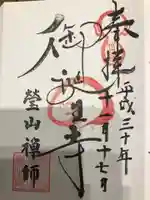 奉拝
平成三十年
十一月十七日
御誕生寺
瑩山禪師